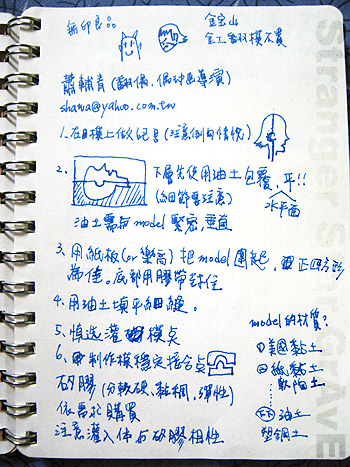 無印良品
金工翻模不買
蕭輔青(翻偶,偶動畫導演)
shawa@yahoo.com.tw
1.在目模上做記號(注意倒勾情槐)
2.
下層先使用油土包覆,平!!
(細節要注意)
水平面
油土需與model緊密,垂直
3.用紙板(or樂高)把model圍起,正四方形
為佳。底部用膠帶封住
4.用油土填平細縫。
5.慎選灌模點
6.制作模穩定接合点
矽膠(分軟硬、黏稠,彈性)
依需求購買
注意灌入体与矽膠相性
model的材質?
①美國黏土
②紙黏土
軟陶土
油土
塑鋼土
Stranger
GRAvE